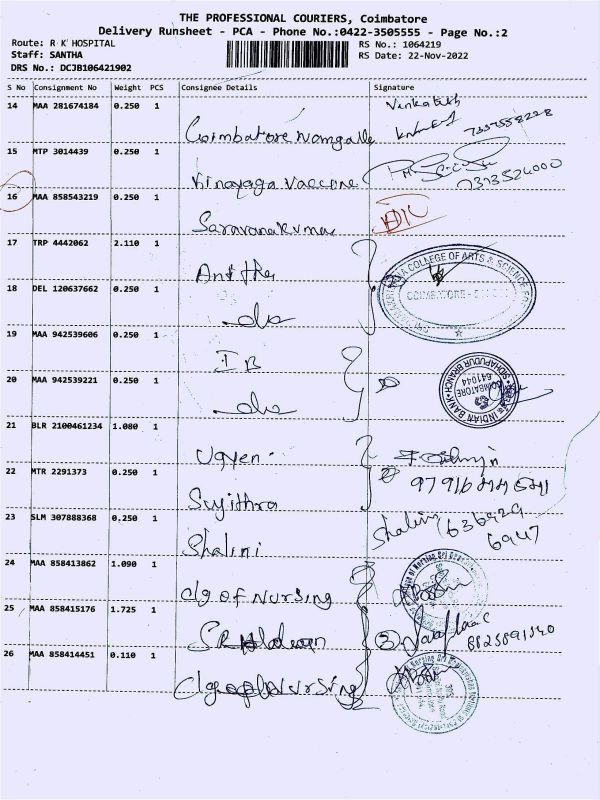 THE PROFESSIONAL COURIERS, Coimbatore
Delivery Runsheet - PCA - Phone No.:0422-3505555 - Page No.:2
Route: R K HOSPITAL
Staff: SANTHA
DRS No.: DCJB106421902
RS No.: 1064219
RS Date: 22-Nov-2022
S No Consignment No Weight PCS Consignee Details Signature
14 MAA 281674184 0.250 1
Venkatesh
Coimbatore
15 MTP 3014439 0.250 1
Vinayaga Vaccine
7373526000
16 MAA 858543219 0.250 1
Saravanakumar
17 TRP 4442062 2.110 1
Anitha
COLLEGE OF ARTS & SCIENCE
COIMBATORE
18 DEL 120637662 0.250 1
do
19 MAA 942539606 0.250 1
IB
20 MAA 942539221 0.250 1
do
INDIAN BANK
COIMBATORE
641044
21 BLR 2100461234 1.080 1
22 MTR 2291373 0.250 1
Sujithra
23 SLM 307888368 0.250 1
Shalini
Shalini
636929
6947
24 MAA 858413862 1.090 1
Clg of Nursing
25 MAA 858415176 1.725 1
26 MAA 858414451 0.110 1
Nursing